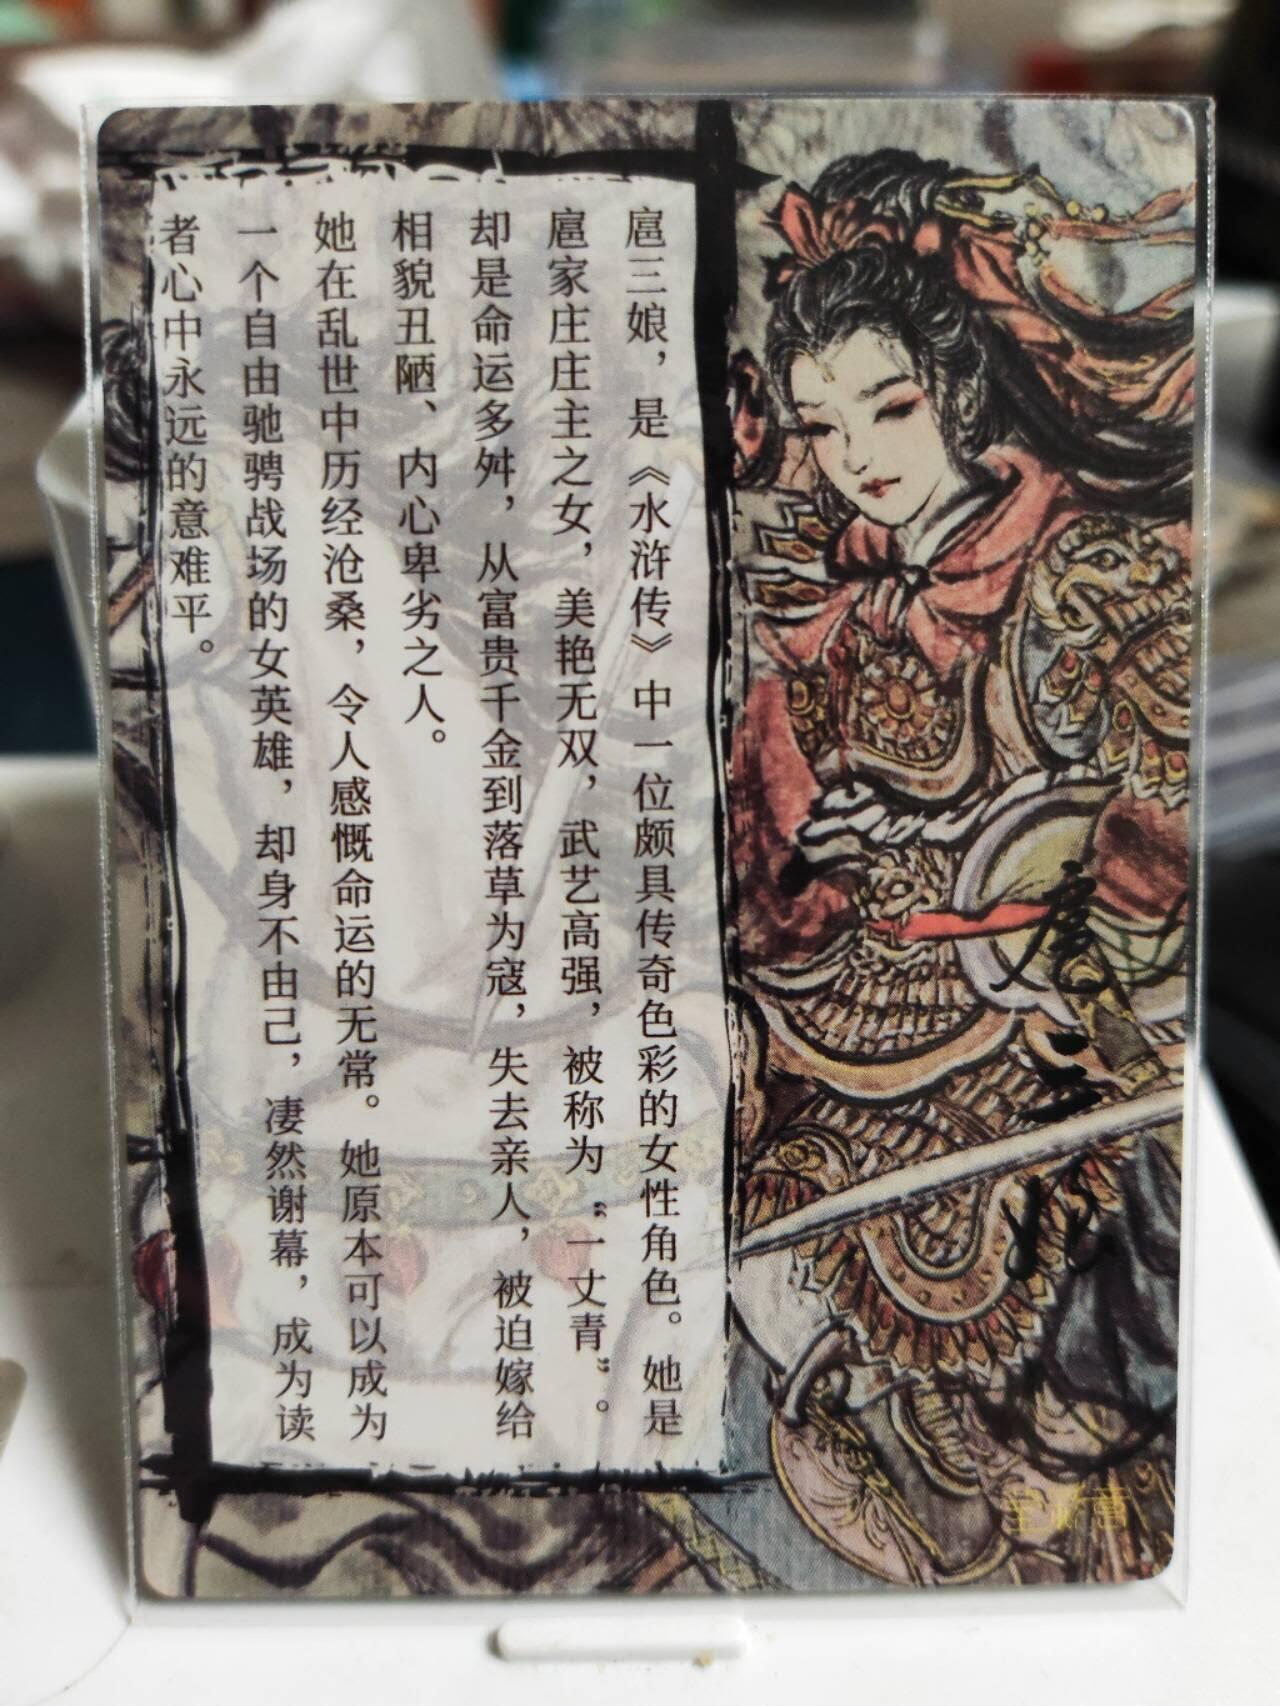 扈三娘，是《水浒传》中一位颇具传奇色彩的女性角色。她是
扈家庄庄主之女，美艳无双，武艺高强，被称为“一丈青”。
却是命运多舛，从富贵千金到落草为寇，失去亲人，被迫嫁给
相貌丑陋、内心卑劣之人。
她在乱世中历经沧桑，令人感慨命运的无常。她原本可以成为
一个自由驰骋战场的女英雄，却身不由己，凄然谢幕，成为读
者心中永远的意难平。
扈三娘